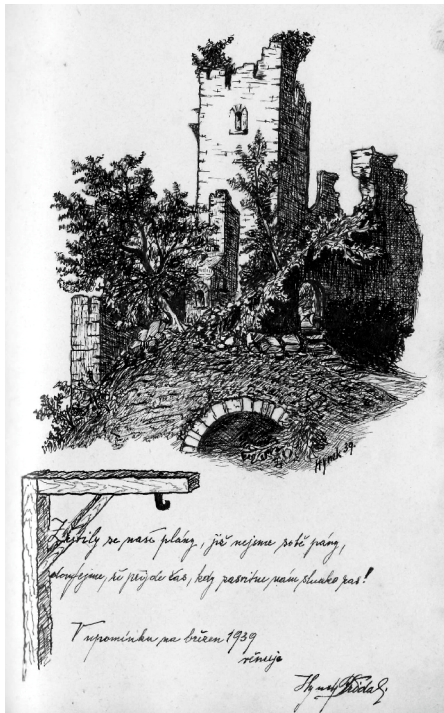 Hynek 39.
Zhatily se naše plány, již nejsme sobě pány,
doufejme, že přijde čas, kdy zasvitne nám slunko zas!
V upomínku na březen 1939
věnuje
Hynek